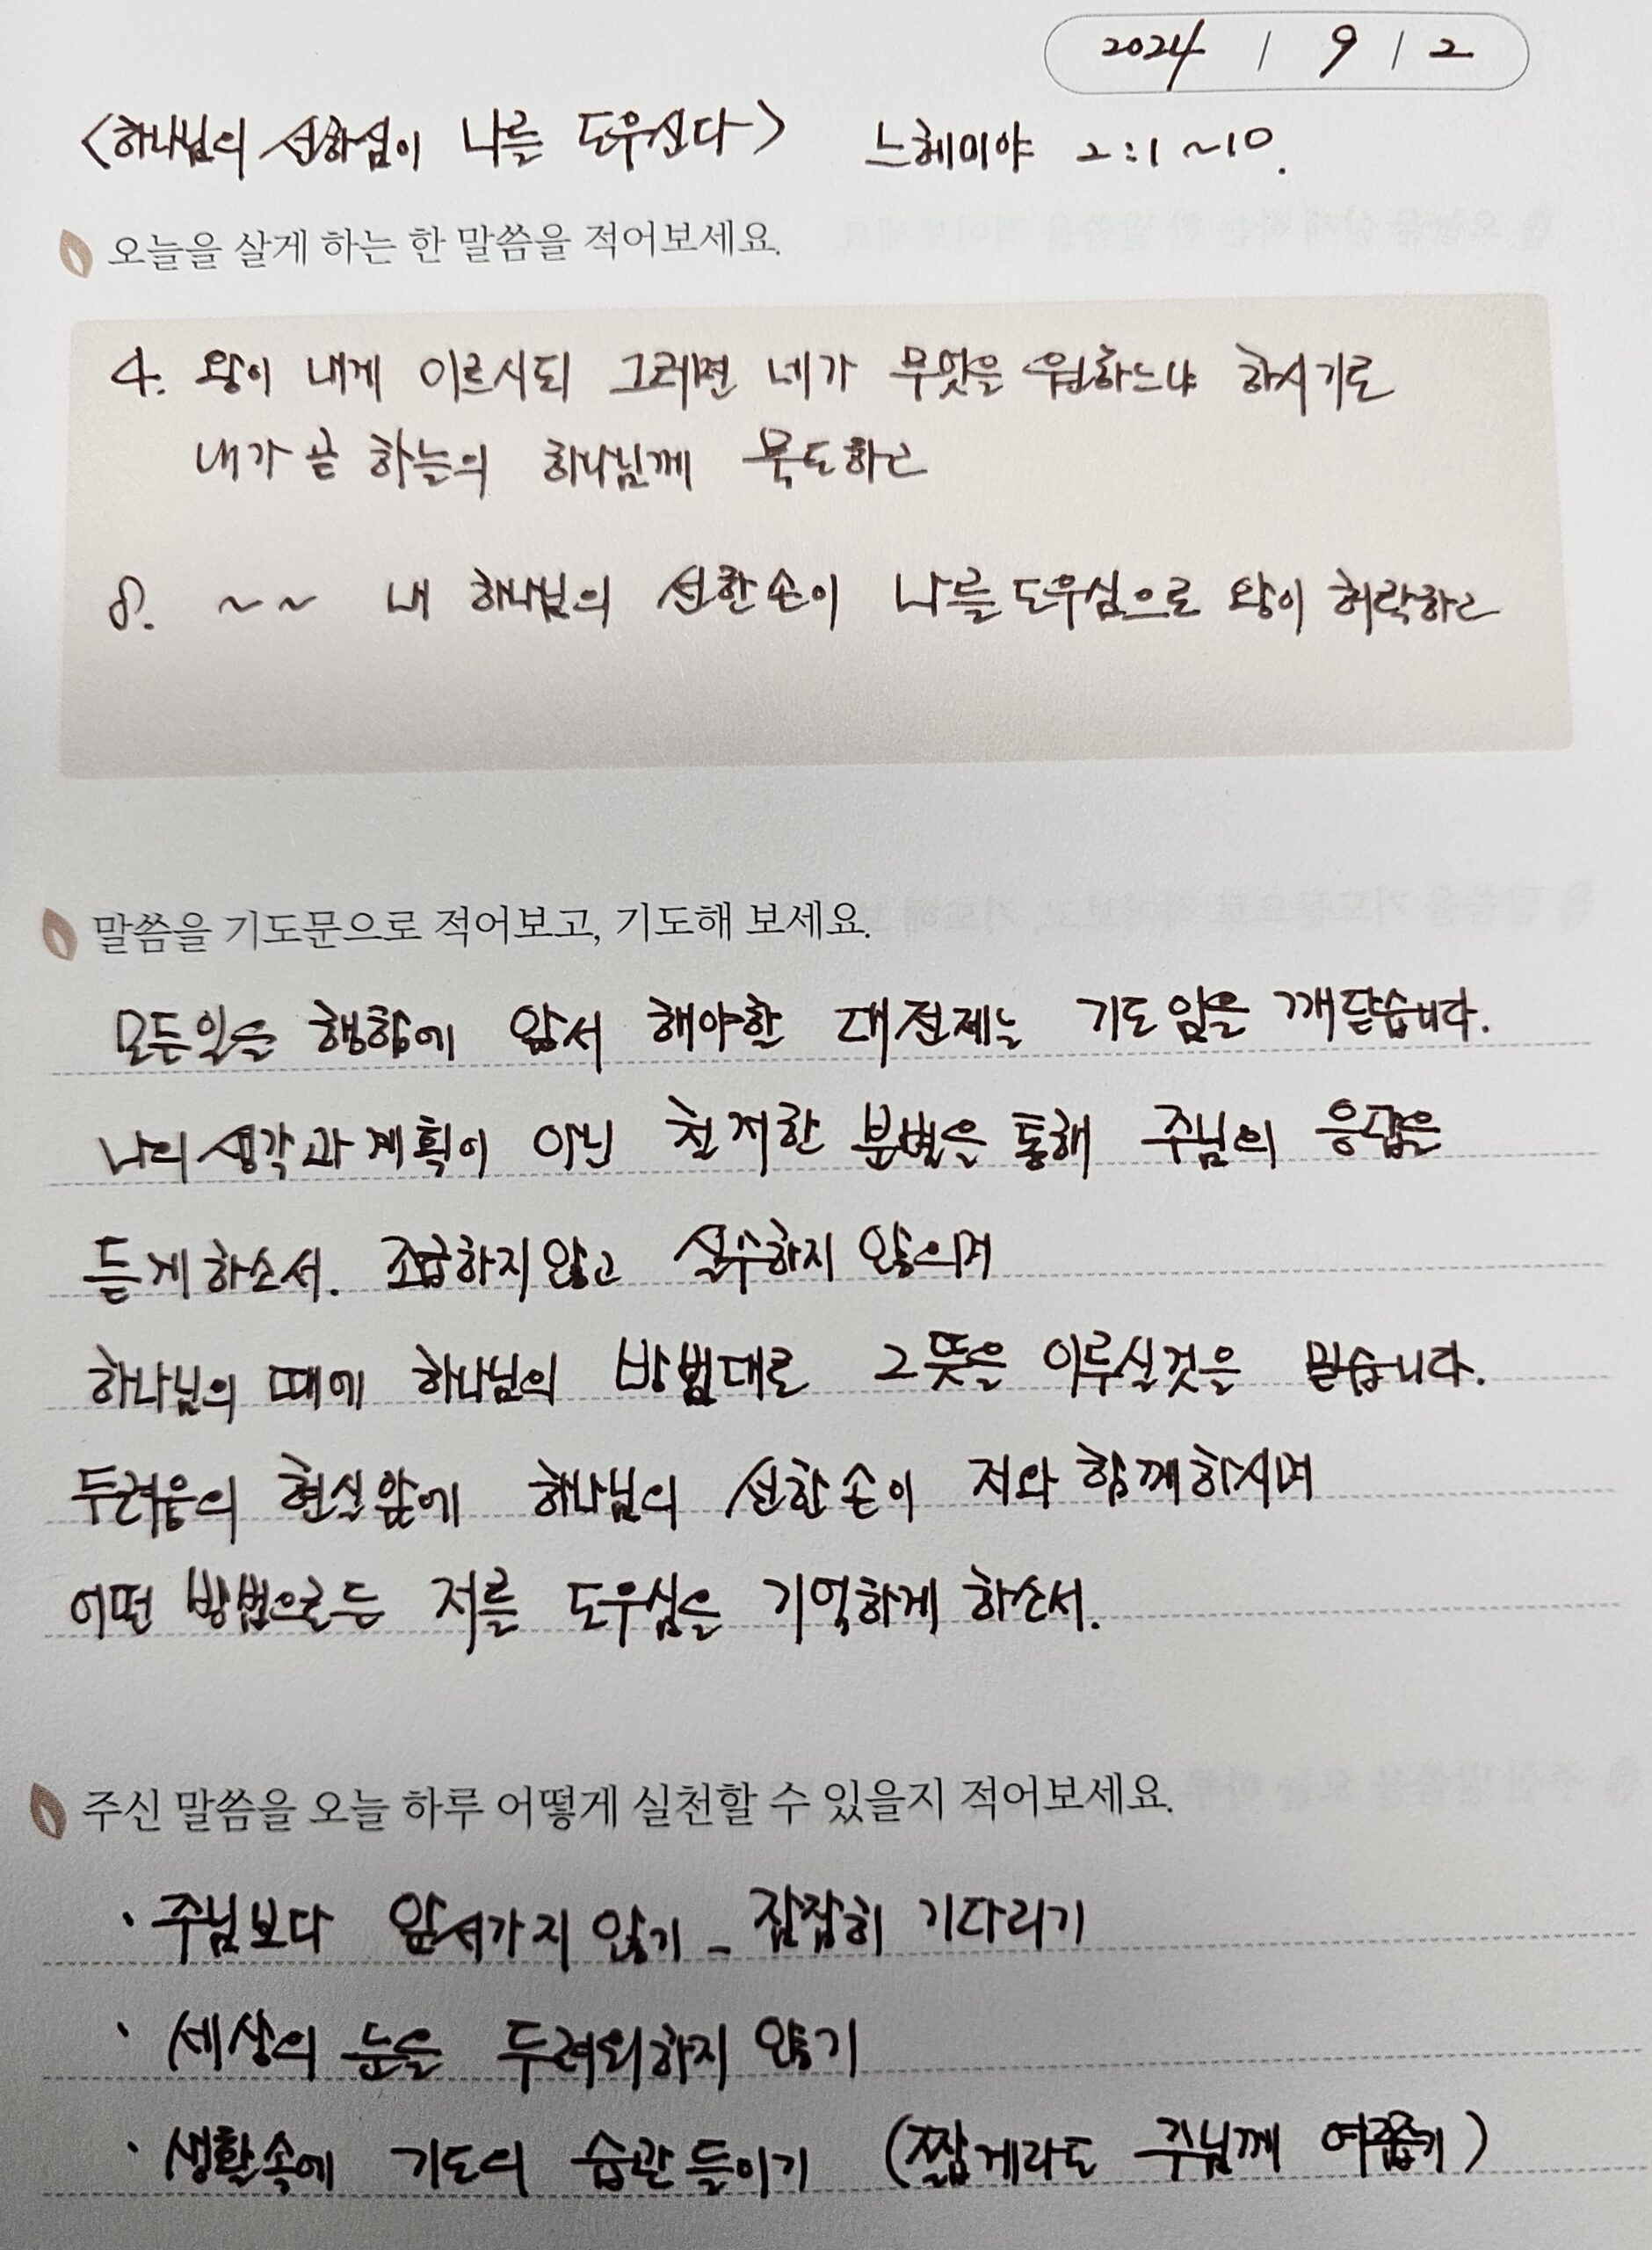 2024 / 9 / 2
<하나님의 선하심이 나를 도우신다> 느헤미야 2:1~10.
오늘을 살게 하는 한 말씀을 적어보세요.
4. 왕이 내게 이르시되 그러면 네가 무엇을 원하느냐 하시기로
내가 곧 하늘의 하나님께 묵도하고
8. ~~ 내 하나님의 선한 손이 나를 도우심으로 왕이 허락하고
말씀을 기도문으로 적어보고, 기도해 보세요.
모든일을 행함에 앞서 해야할 대전제는 기도임을 깨닫습니다.
나의 생각과 계획이 아닌 철저한 분별을 통해 주님의 응답을
듣게 하소서. 조급하지 않고 실수하지 않으며
하나님의 때에 하나님의 방법대로 그 뜻을 이루실것을 믿습니다.
두려움의 현실 앞에 하나님의 선한 손이 저와 함께하시며
어떤 방법으로든 저를 도우심을 기억하게 하소서.
주신 말씀을 오늘 하루 어떻게 실천할 수 있을지 적어보세요.
· 주님보다 앞서가지 않기 - 잠잠히 기다리기
· 세상의 눈을 두려워하지 않기
· 생활속에 기도의 습관 들이기 (짧게라도 주님께 여쭙기)